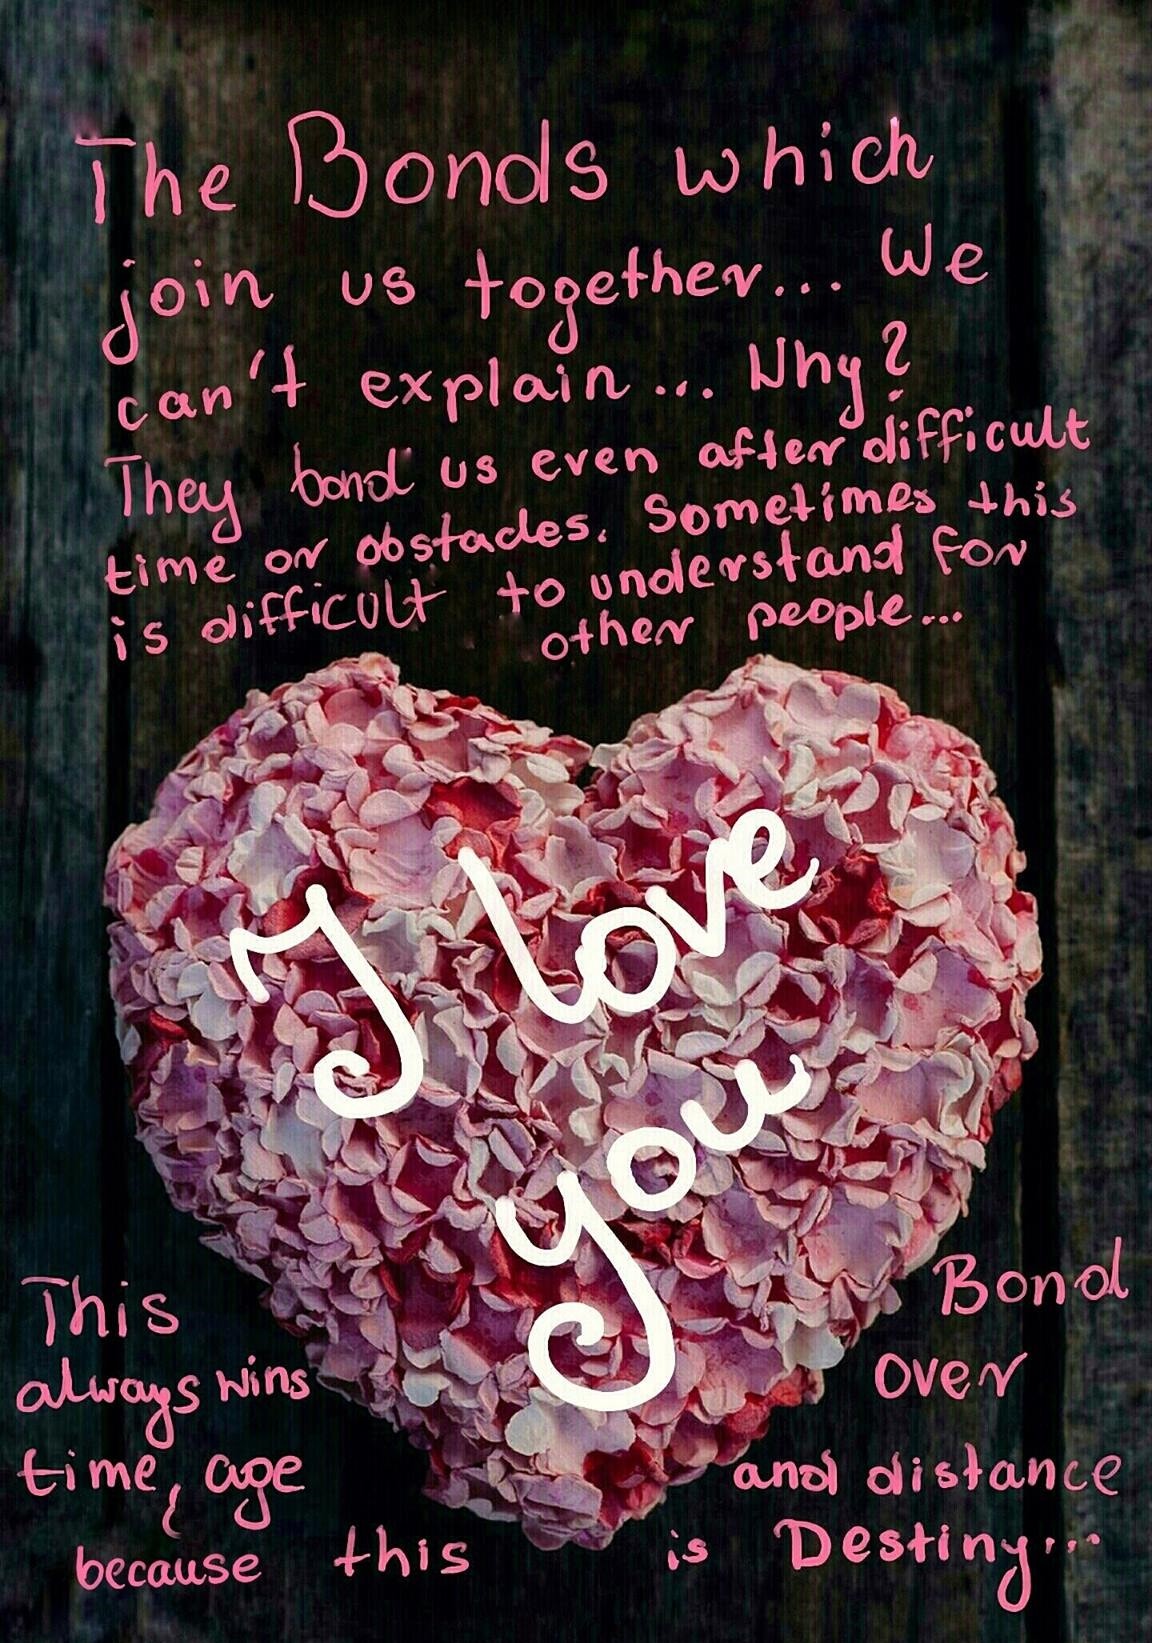 The Bonds which
join us together... We
can't explain... Why?
They bond us even after difficult
time or obstacles. Sometimes this
is difficult to understand for
other people...
I love
you
This Bond
always wins over
time, age and distance
because this is Destiny...